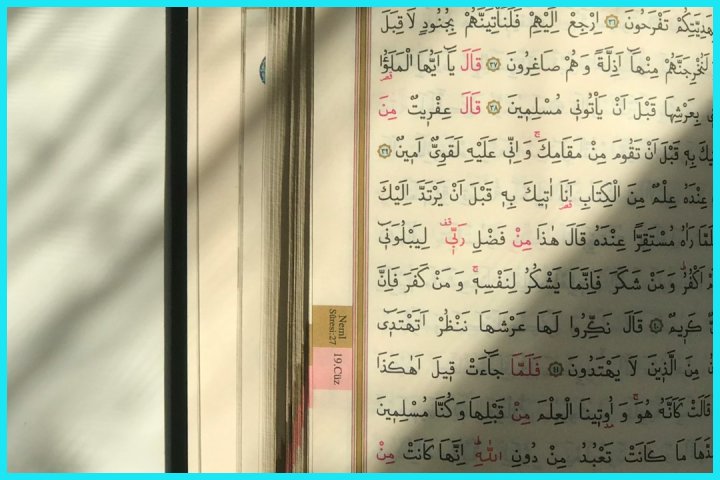 بِهَدِيَّتِكُمْ تَفْرَحُونَ ﴿٣٦﴾ اِرْجِعْ اِلَيْهِمْ فَلَنَأْتِيَنَّهُمْ بِجُنُودٍ لَا قِبَلَ
وَلَنُخْرِجَنَّهُمْ مِنْهَٓا اَذِلَّةً وَهُمْ صَاغِرُونَ ﴿٣٧﴾ قَالَ يَٓا اَيُّهَا الْمَلَؤُ۬ا
بِعَرْشِهَا قَبْلَ اَنْ يَأْتُونٖي مُسْلِمٖينَ ﴿٣٨﴾ قَالَ عِفْرٖيتٌ مِنَ
بِهٖ قَبْلَ اَنْ تَقُومَ مِنْ مَقَامِكَ وَاِنّٖي عَلَيْهِ لَقَوِيٌّ اَمٖينٌ ﴿٣٩﴾
عِنْدَهُ عِلْمٌ مِنَ الْكِتَابِ اَنَا۬ اٰتٖيكَ بِهٖ قَبْلَ اَنْ يَرْتَدَّ اِلَيْكَ
رَاٰهُ مُسْتَقِرًّا عِنْدَهُ قَالَ هٰذَا مِنْ فَضْلِ رَبّٖي لِيَبْلُوَنٖٓي
اَكْفُرُ وَمَنْ شَكَرَ فَاِنَّمَا يَشْكُرُ لِنَفْسِهٖ وَمَنْ كَفَرَ فَاِنَّ
كَرٖيمٌ ﴿٤٠﴾ قَالَ نَكِّرُوا لَهَا عَرْشَهَا نَنْظُرْ اَتَهْتَدٖٓي
مِنَ الَّذٖينَ لَا يَهْتَدُونَ ﴿٤١﴾ فَلَمَّا جَٓاءَتْ قٖيلَ اَهٰكَذَا
قَالَتْ كَاَنَّهُ هُوَ وَاُو۫تٖينَا الْعِلْمَ مِنْ قَبْلِهَا وَكُنَّا مُسْلِمٖينَ
مَا كَانَتْ تَعْبُدُ مِنْ دُونِ اللّٰهِ اِنَّهَا كَانَتْ مِنْ
Neml
Sûresi:27
19.Cüz